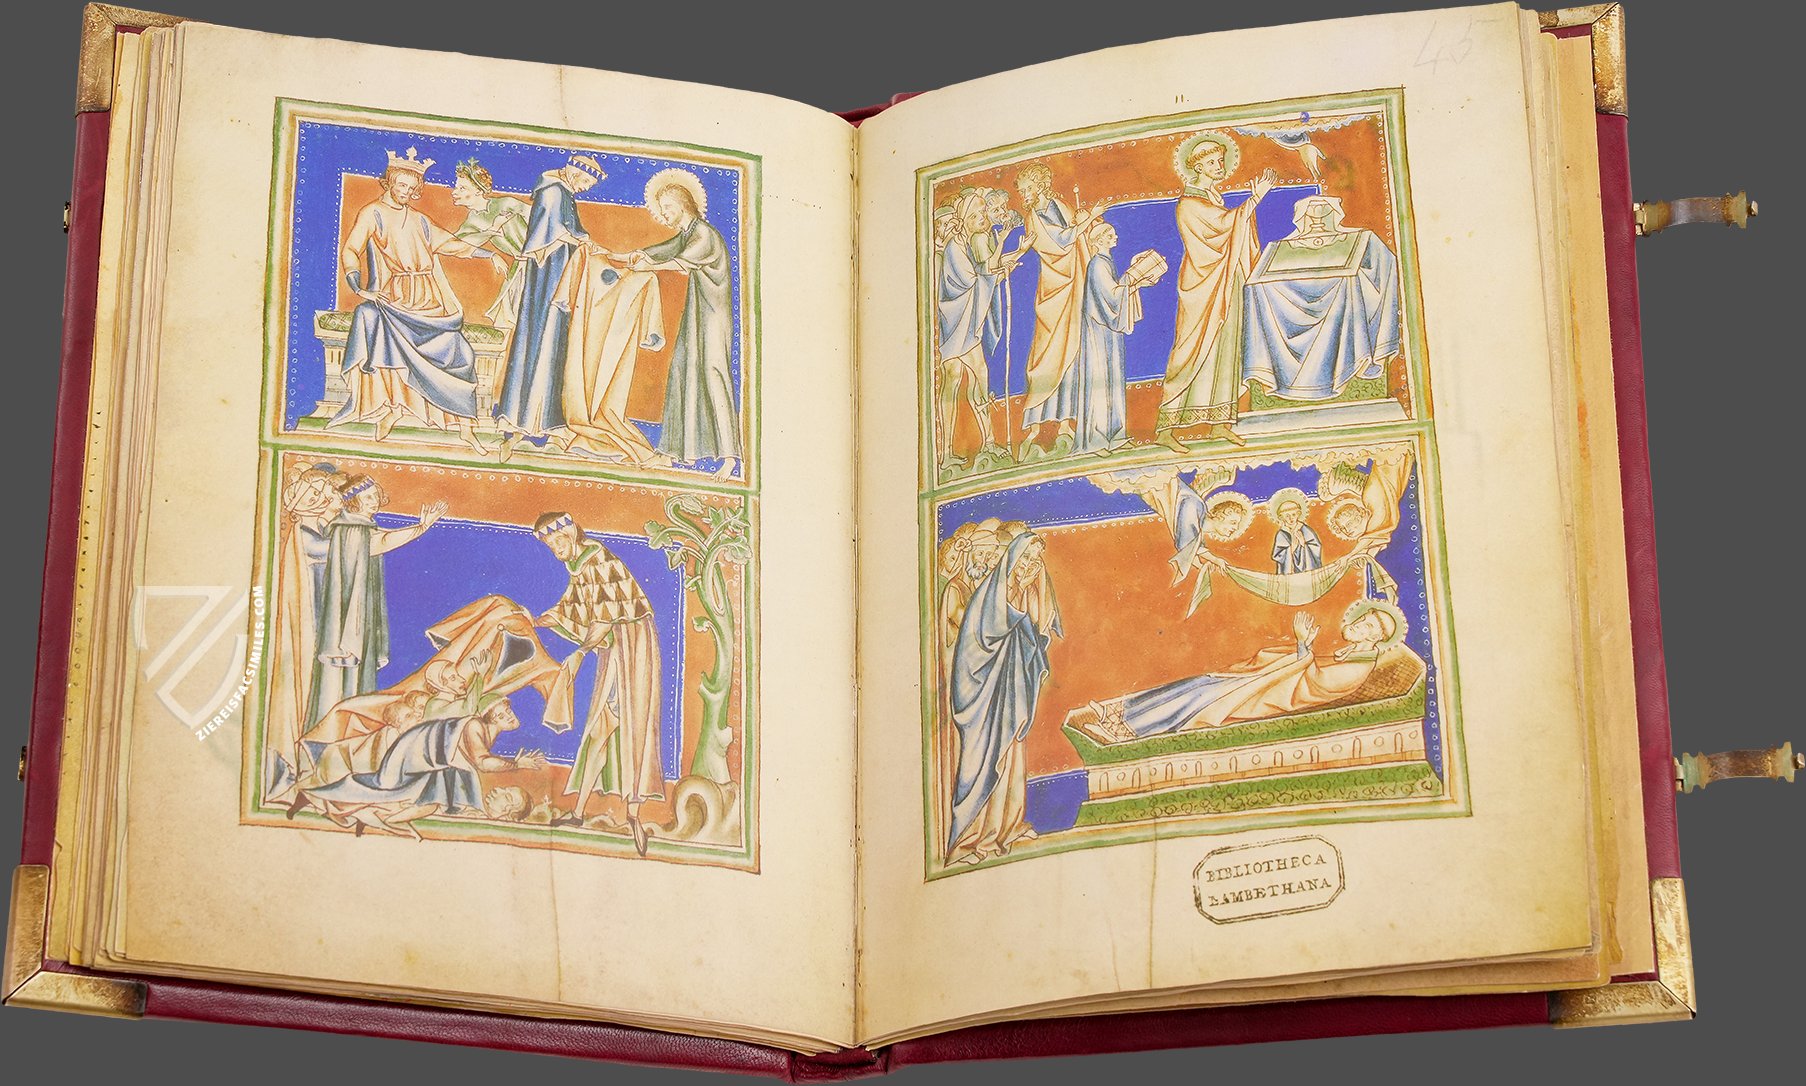 45
11.
ZIEREISFACSIMILES.COM
BIBLIOTHECA
LAMBETHANA